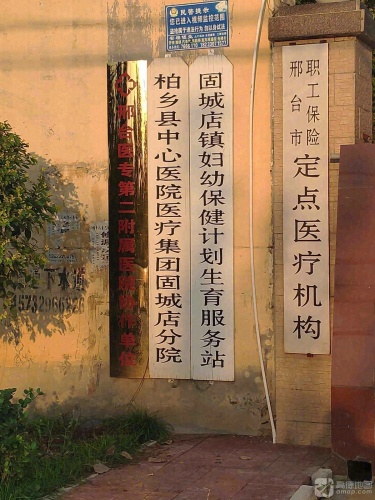 民警提示
您已进入视频监控范围
邢台医专第二附属医院协作单位
柏乡县中心医院医疗集团固城店分院
固城店镇妇幼保健计划生育服务站
邢台市
职工保险
定点医疗机构
下水道
高德地图
amap.com